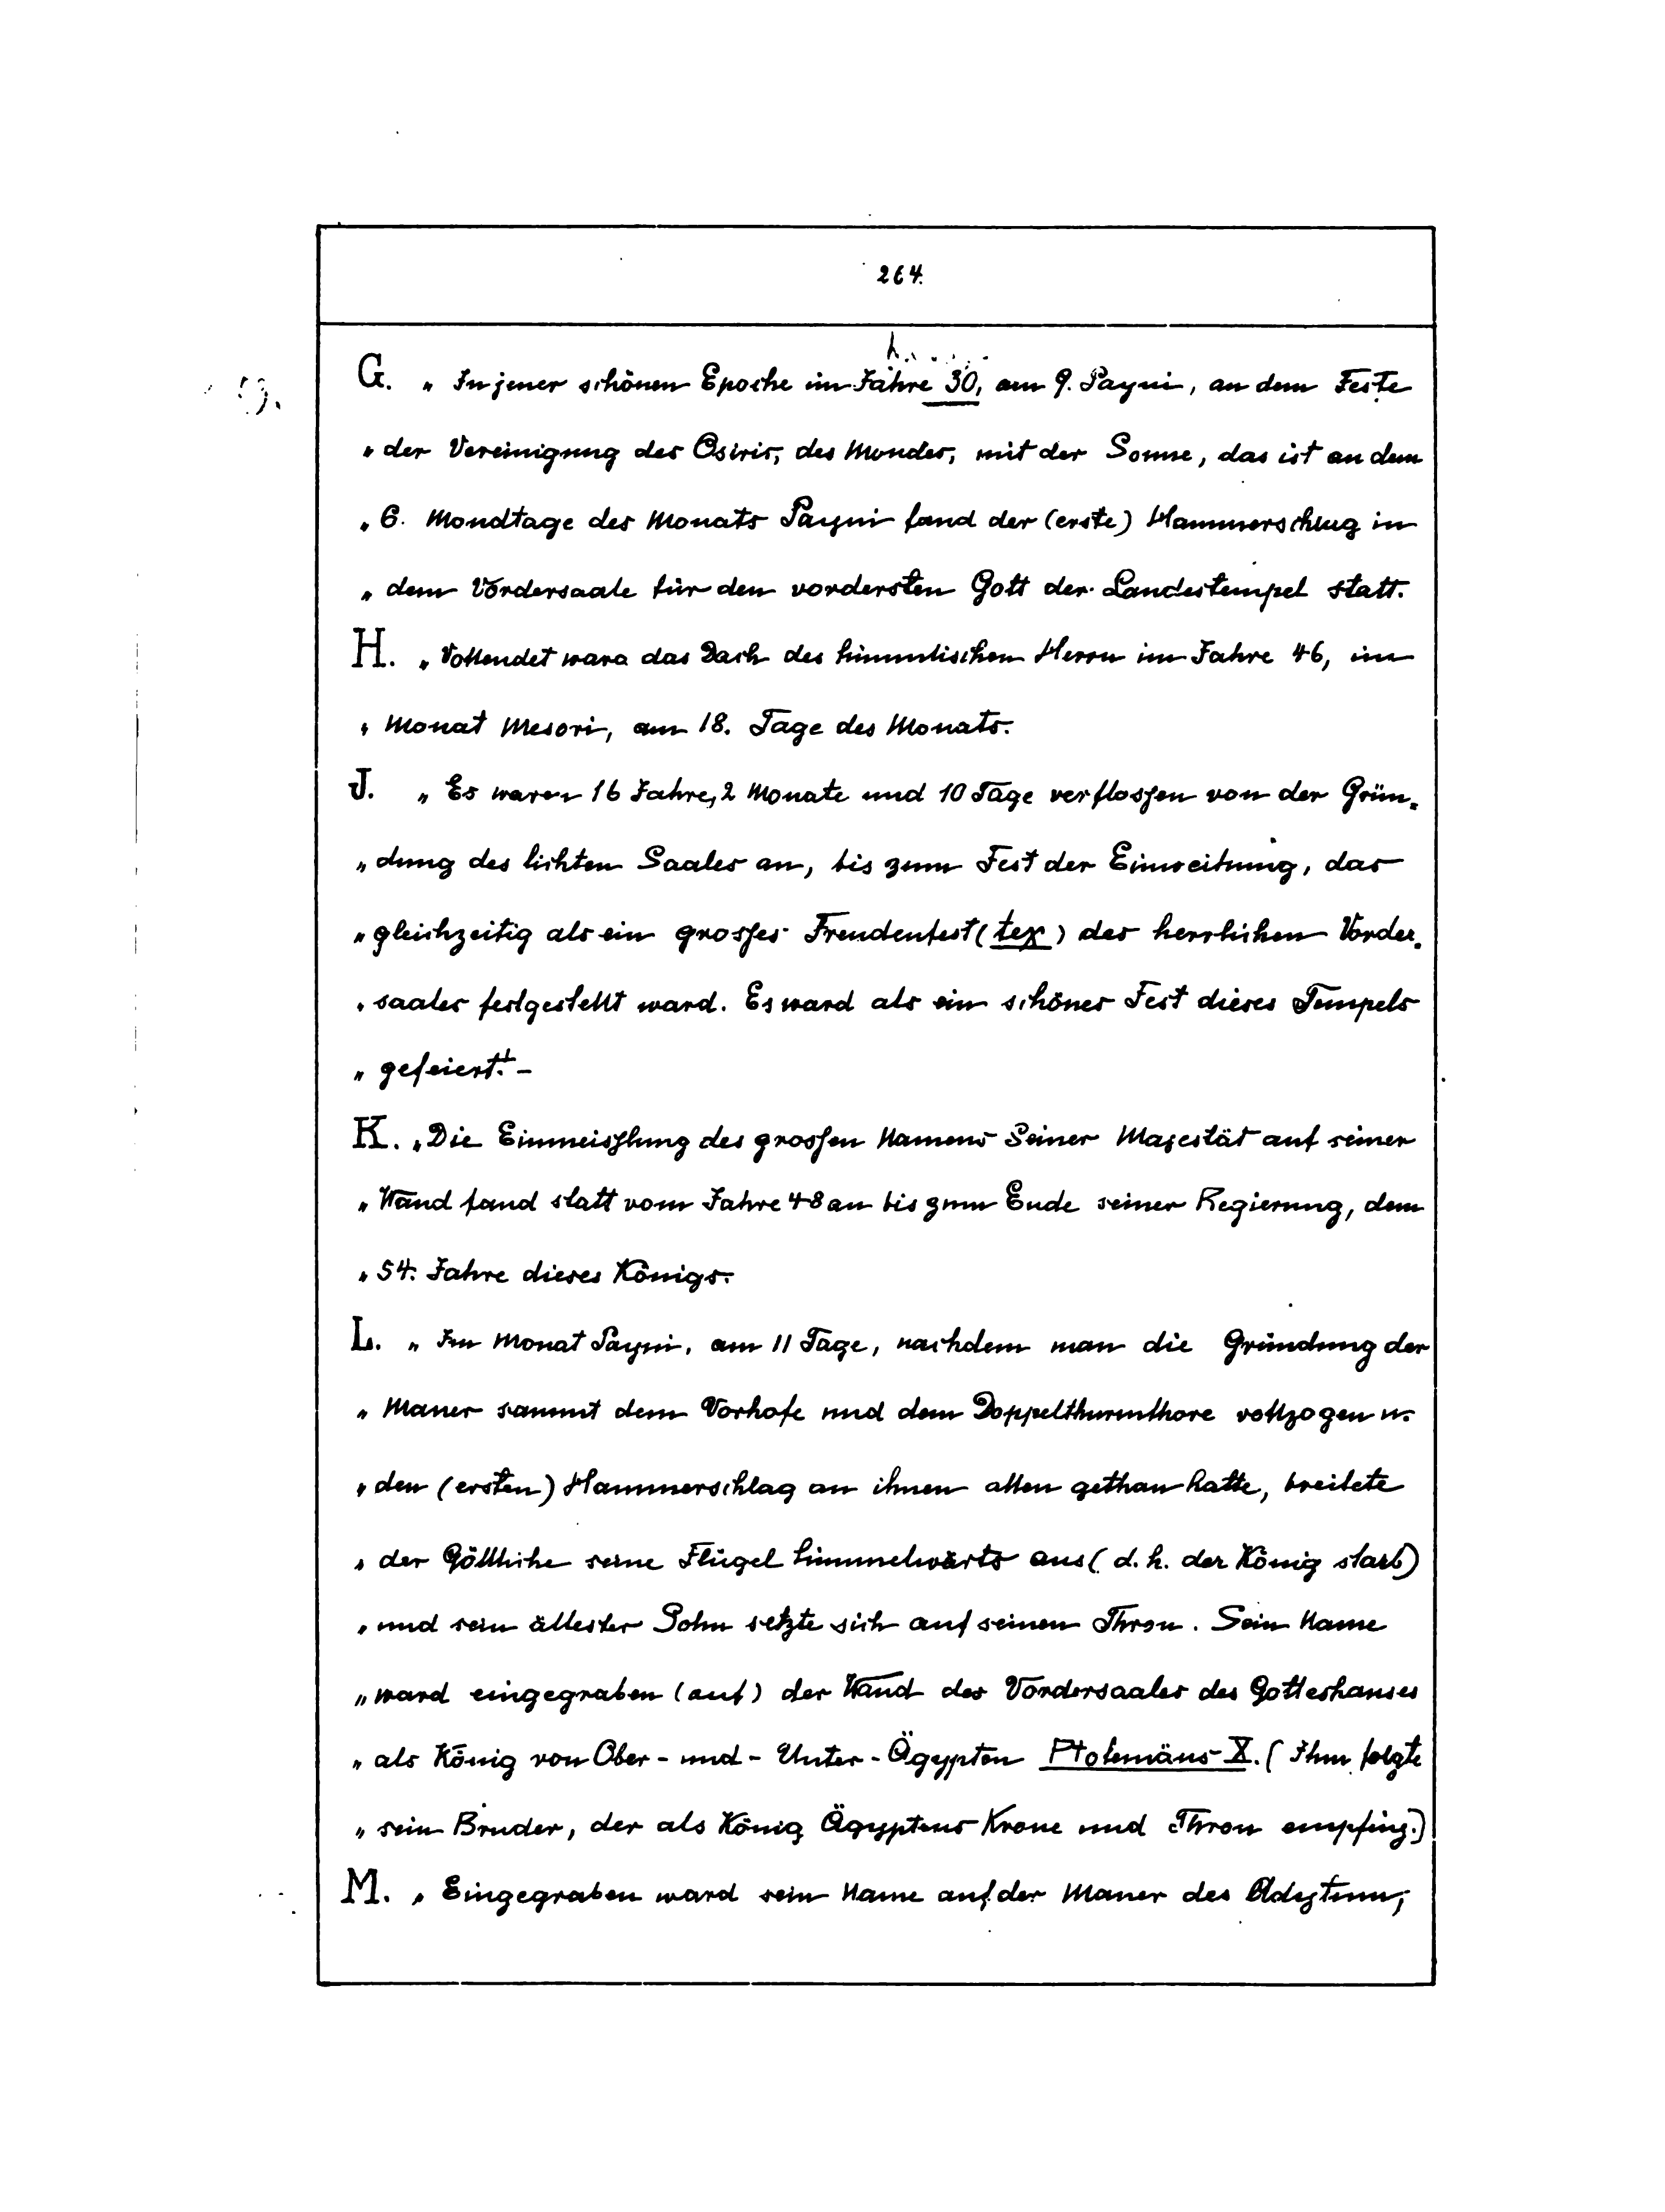 264.
G. „ In jener schönen Epoche im Jahre 30, am 9. Payni, an dem Feste
„ der Vereinigung des Osiris, des Mondes, mit der Sonne, das ist an dem
„ 6. Mondtage des Monats Payni fand der (erste) Hammerschlag in
„ dem Vordersaale für den vordersten Gott der Landestempel statt.
H. „ Vollendet ward das Dach des himmlischen Herrn im Jahre 46, im
„ Monat Mesori, am 18. Tage des Monats.
J. „ Es waren 16 Jahre, 2 Monate und 10 Tage verflossen von der Grün-
„ dung des lichten Saales an, bis zum Fest der Einweihung, das
„ gleichzeitig als ein grosses Freudenfest (tex) des herrlichen Vorder-
„ saales festgestellt ward. Es ward als ein schönes Fest dieses Tempels
„ gefeiert." –
K. „ Die Einmeisslung des grossen Namens Seiner Majestät auf seiner
„ Wand fand statt vom Jahre 48 an bis zum Ende seiner Regierung, dem
„ 54. Jahre dieses Königs.
L. „ Im Monat Payni, am 11 Tage, nachdem man die Gründung der
„ Mauer sammt dem Vorhofe und dem Doppelthurmthore vollzogen u.
„ den (ersten) Hammerschlag an ihnen allen gethan hatte, breitete
„ der Göttliche seine Flügel himmelwärts aus (d. h. der König starb)
„ und sein ältester Sohn setzte sich auf seinen Thron. Sein Name
„ ward eingegraben (auf) der Wand des Vordersaales des Gotteshauses
„ als König von Ober - und - Unter - Ägypten Ptolemäus X. (Ihm folgte
„ sein Bruder, der als König Ägyptens Krone und Thron empfing.)
M. „ Eingegraben ward sein Name auf der Mauer des